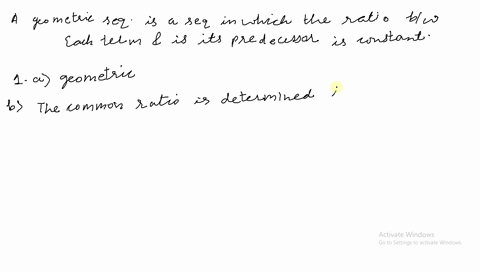 A geometric seq. is a seq in which the ratio b/w
Each term & is its predecessor is constant.
1. a) geometric
b) The common ratio is determined ;
Activate Windows
Go to Settings to activate Windows.